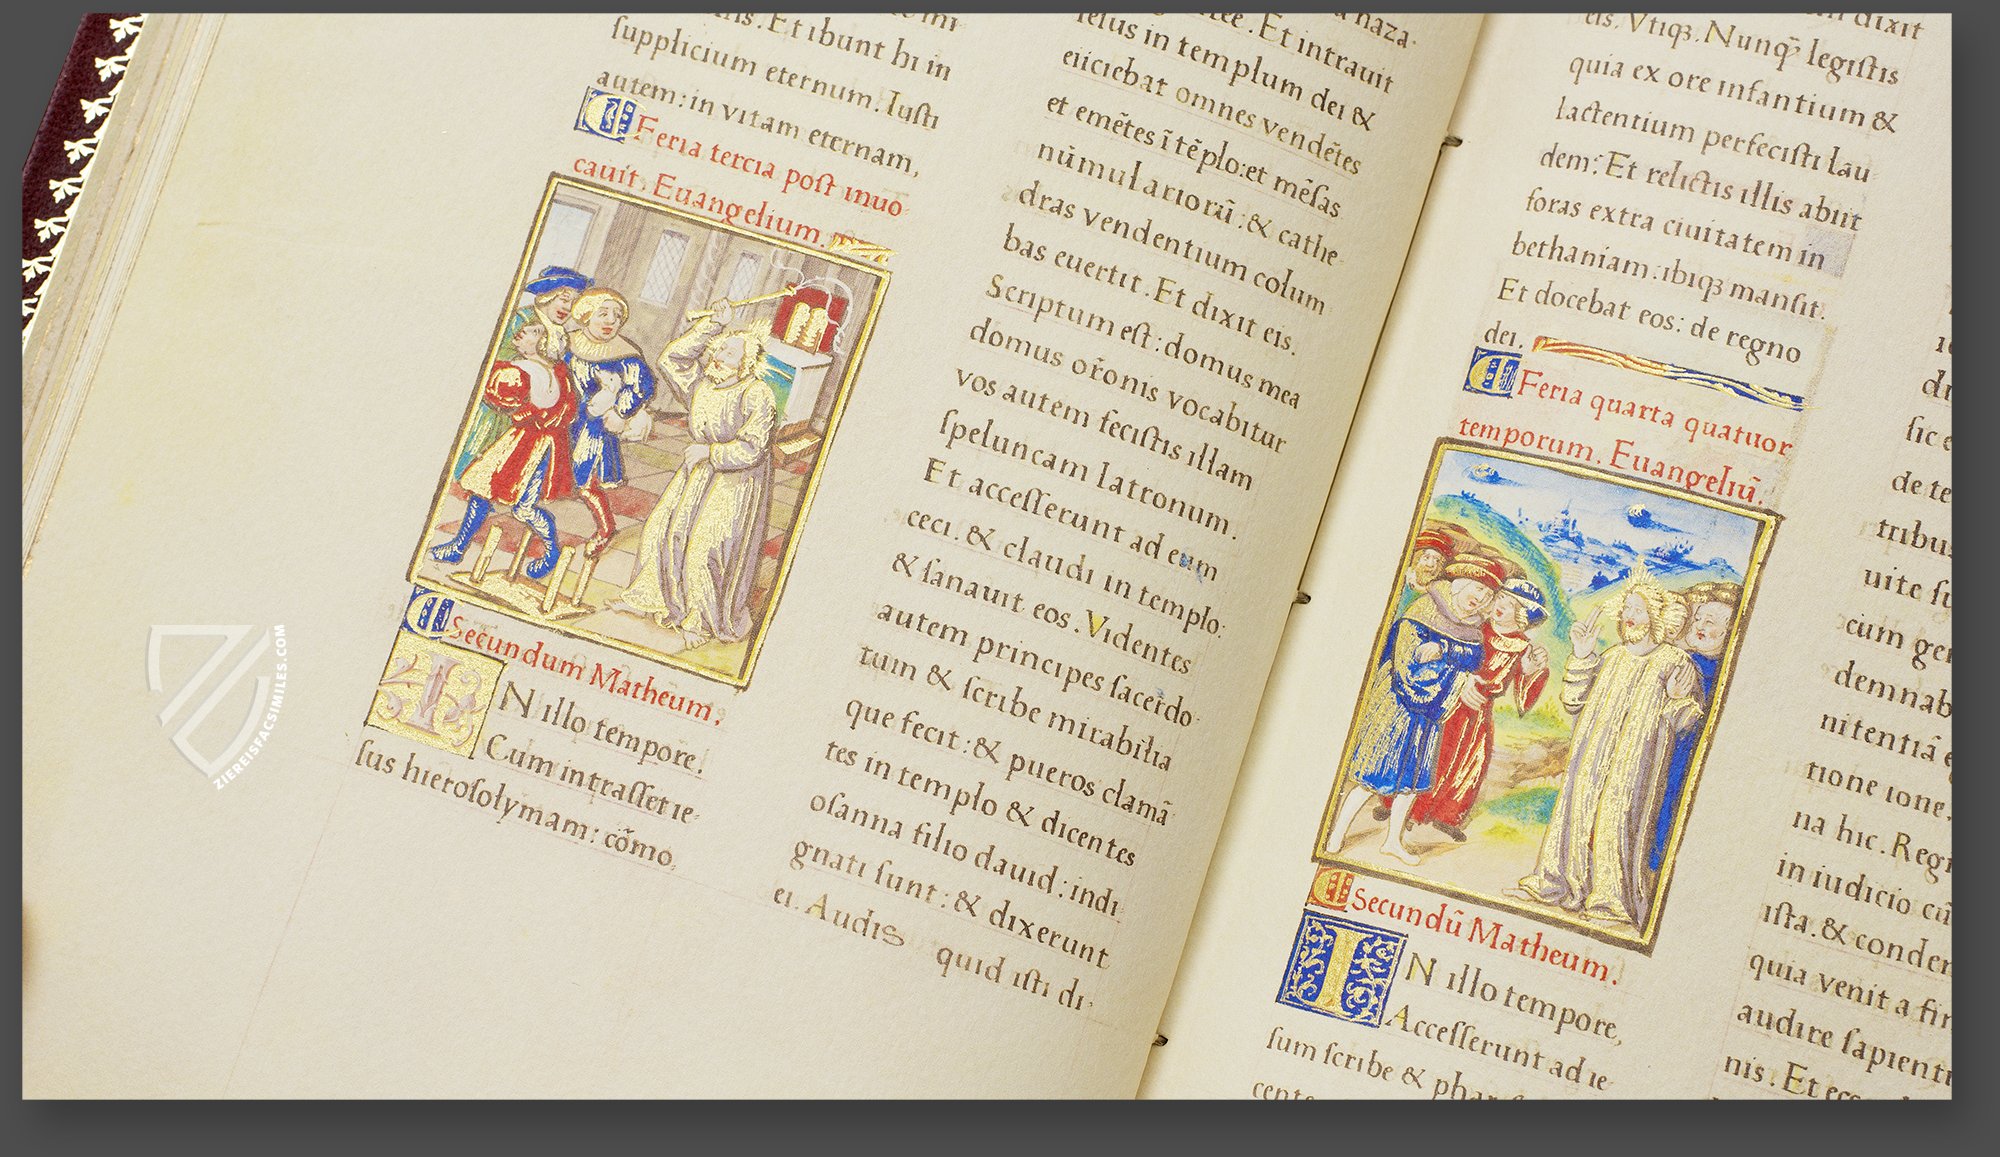 supplicium eternum. Iusti
autem: in vitam eternam,
Feria tercia post inuo
cauit. Euangelium.
Secundum Matheum.
IN illo tempore.
Cum intrasset ie
sus hierosolymam: cōmo
Et intrauit
iesus in templum dei &
eiiciebat omnes vendētes
et emētes ī tēplo: et mēsas
nūmulariorū: & cathe
dras vendentium colum
bas euertit. Et dixit eis.
Scriptum est: domus mea
domus or̄onis vocabitur
vos autem fecistis illam
speluncam latronum.
Et accesserunt ad eum
ceci. & claudi in templo:
& sanauit eos. Videntes
autem principes sacerdo
tum & scribe mirabilia
que fecit: & pueros clamā
tes in templo & dicentes
osanna filio dauid: indi
gnati sunt: & dixerunt
ei. Audis quid isti di
dixit
eis. Vtiqꝫ. Nunqꝫ̄ legistis
quia ex ore infantium &
lactentium perfecisti lau
dem: Et relictis illis abiit
foras extra ciuitatem in
bethaniam: ibiqꝫ mansit.
Et docebat eos: de regno
dei.
Feria quarta quatuor
temporum. Euangeliū.
Secundū Matheum.
IN illo tempore,
Accesserunt ad ie
sum scribe &
sic e
de te
tribu
uite su
cum gen
demnab
nitentiā e
tione ione.
na hic. Regi
in iudicio cū
ista. & conden
quia venit a fin
audire sapienti
nis. Et ecce
ZIEREISFACSIMILES.COM